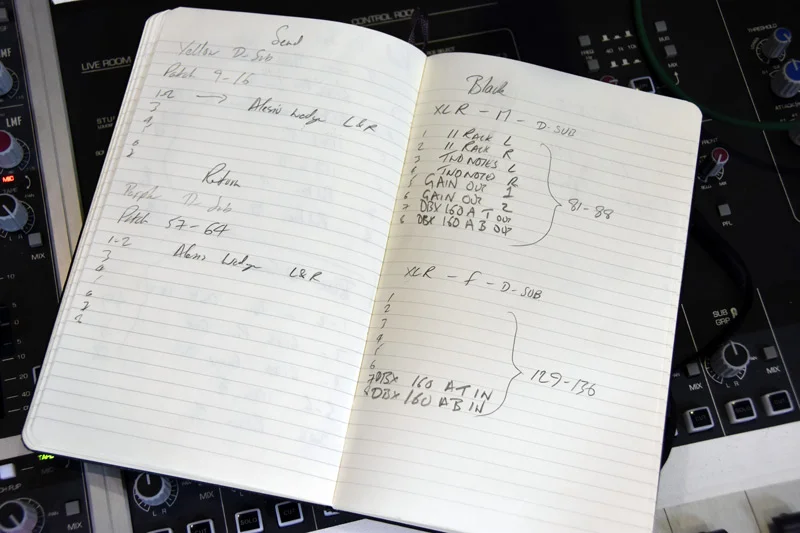 Send
Yellow D-Sub
Patch 9-16
1-2 → Alesis Wedge L&R
3
4
5
6
8
Return
Purple D-Sub
Patch 57-64
1-2 Alesis Wedge L&R
3
4
6
7
8
Black
XLR - M - D-SUB
1 11 RACK L
2 11 RACK R
3 TWO NOTES L
4 TWO NOTES R
5 GAIN OUT 1
6 GAIN OUT 2
7 DBX 160 A T OUT
8 DBX 160 A B OUT
81-88
XLR - F - D-SUB
1
2
3
4
5
6
7 DBX 160 A T IN
8 DBX 160 A B IN
129-136
LIVE ROOM
CONTROL ROOM
LMF
MID
MIX
L R
THRESHOLD
PFL
SUB GRP
L R
MIX
MIX
L R
MIX
SOLO
CUT